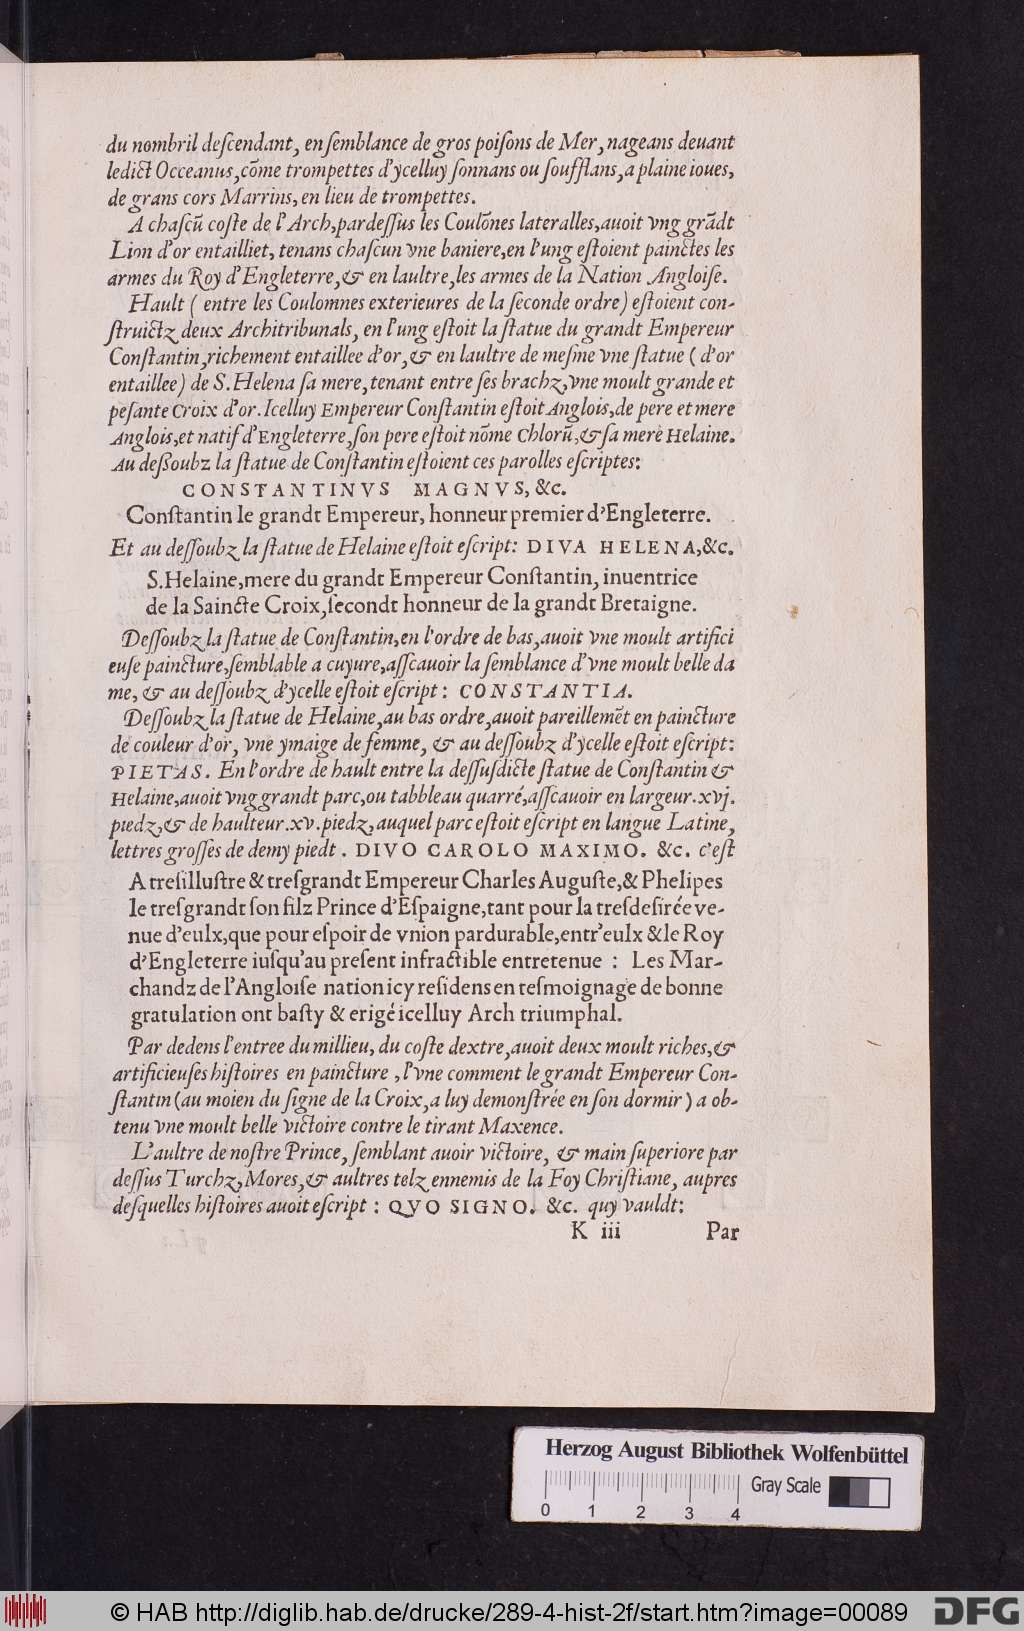 du nombril deſcendant, en ſemblance de gros poiſons de Mer, nageans deuant
ledict Occeanus, cõme trompettes d'ycelluy ſonnans ou ſoufflans, a plaine ioues,
de grans cors Marrins, en lieu de trompettes.
A chaſcũ coſte de l'Arch, pardeſſus les Coulõnes lateralles, auoit vng grãdt
Lion d'or entailliet, tenans chaſcun vne baniere, en l'ung eſtoient painctes les
armes du Roy d'Engleterre, & en laultre, les armes de la Nation Angloiſe.
Hault ( entre les Coulomnes exterieures de la ſeconde ordre) eſtoient con-
ſtruictz deux Architribunals, en l'ung eſtoit la ſtatue du grandt Empereur
Conſtantin, richement entaillee d'or, & en laultre de meſme vne ſtatue ( d'or
entaillee) de S. Helena ſa mere, tenant entre ſes brachz, vne moult grande et
peſante Croix d'or. Icelluy Empereur Conſtantin eſtoit Anglois, de pere et mere
Anglois, et natif d'Engleterre, ſon pere eſtoit nõme Chlorũ, & ſa mere Helaine.
Au deſſoubz la ſtatue de Conſtantin eſtoient ces parolles eſcriptes:
CONSTANTINVS MAGNVS, &c.
Conſtantin le grandt Empereur, honneur premier d'Engleterre.
Et au deſſoubz la ſtatue de Helaine eſtoit eſcript: DIVA HELENA, &c.
S. Helaine, mere du grandt Empereur Conſtantin, inuentrice
de la Saincte Croix, ſecondt honneur de la grandt Bretaigne.
Deſſoubz la ſtatue de Conſtantin, en l'ordre de bas, auoit vne moult artifici
euſe paincture, ſemblable a cuyure, aſſcauoir la ſemblance d'vne moult belle da
me, & au deſſoubz d'ycelle eſtoit eſcript: CONSTANTIA.
Deſſoubz la ſtatue de Helaine, au bas ordre, auoit pareillemẽt en paincture
de couleur d'or, vne ymaige de femme, & au deſſoubz d'ycelle eſtoit eſcript:
PIETAS. En l'ordre de hault entre la deſſuſdicte ſtatue de Conſtantin &
Helaine, auoit vng grandt parc, ou tabbleau quarré, aſſcauoir en largeur .xvj.
piedz, & de haulteur .xv. piedz, auquel parc eſtoit eſcript en langue Latine,
lettres groſſes de demy piedt. DIVO CAROLO MAXIMO. &c. c'eſt
A treſilluſtre & treſgrandt Empereur Charles Auguſte, & Phelipes
le treſgrandt ſon filz Prince d'Eſpaigne, tant pour la treſdeſirée ve-
nue d'eulx, que pour eſpoir de vnion pardurable, entr'eulx & le Roy
d'Engleterre iuſqu'au preſent infractible entretenue : Les Mar-
chandz de l'Angloiſe nation icy reſidens en teſmoignage de bonne
gratulation ont baſty & erigé icelluy Arch triumphal.
Par dedens l'entree du millieu, du coſte dextre, auoit deux moult riches, &
artificieuſes hiſtoires en paincture, l'vne comment le grandt Empereur Con-
ſtantin (au moien du ſigne de la Croix, a luy demonſtrée en ſon dormir) a ob-
tenu vne moult belle victoire contre le tirant Maxence.
L'aultre de noſtre Prince, ſemblant auoir victoire, & main ſuperiore par
deſſus Turchz, Mores, & aultres telz ennemis de la Foy Chriſtiane, aupres
deſquelles hiſtoires auoit eſcript : QVO SIGNO. &c. quy vauldt:
K iii Par
Herzog August Bibliothek Wolfenbüttel
Gray Scale
0 1 2 3 4
© HAB http://diglib.hab.de/drucke/289-4-hist-2f/start.htm?image=00089
DFG